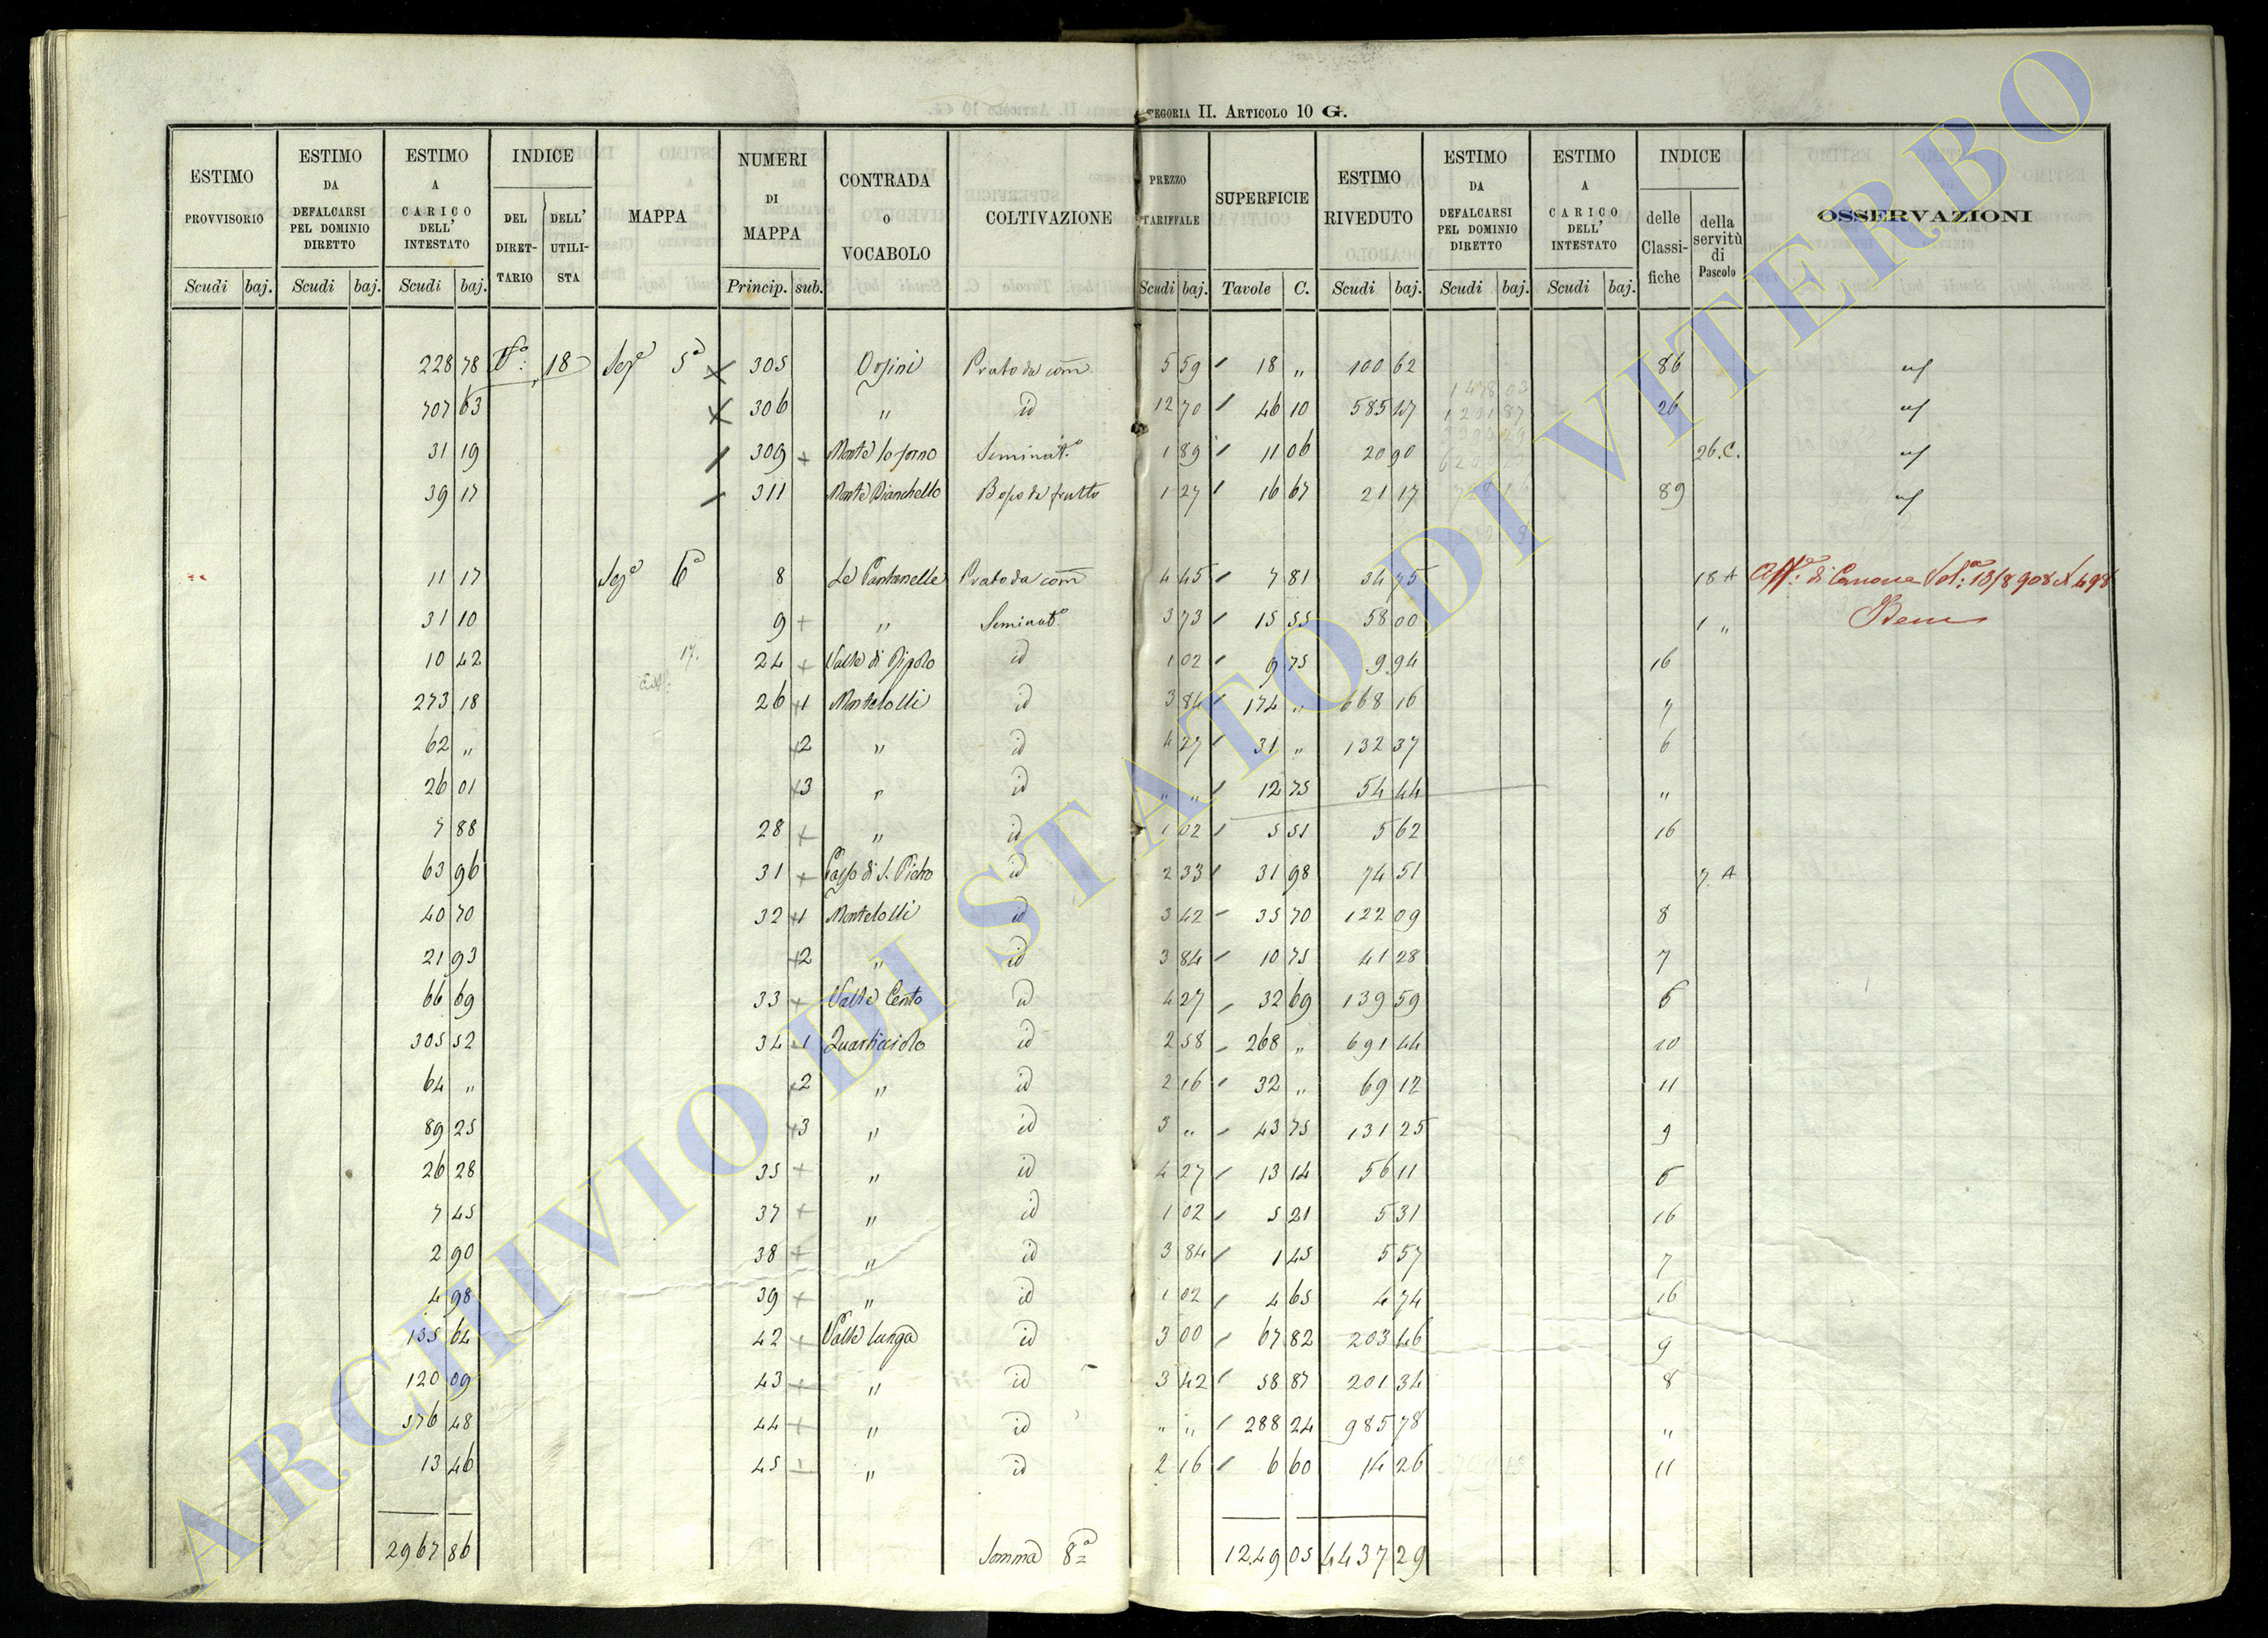 TEGORIA II. ARTICOLO 10 G.
ESTIMO PROVVISORIO
ESTIMO DA DEFALCARSI PEL DOMINIO DIRETTO
ESTIMO A CARICO DELL' INTESTATO
INDICE
DEL DIRETTARIO
DELL' UTILISTA
MAPPA
NUMERI DI MAPPA
CONTRADA O VOCABOLO
COLTIVAZIONE
PREZZO TARIFFALE
SUPERFICIE
ESTIMO RIVEDUTO
ESTIMO DA DEFALCARSI PEL DOMINIO DIRETTO
ESTIMO A CARICO DELL' INTESTATO
INDICE
delle Classifiche
della servitù di Pascolo
OSSERVAZIONI
Scudi baj. Scudi baj. Scudi baj. Princip. sub. Scudi baj. Tavole C. Scudi baj. Scudi baj. Scudi baj.
228 78 18 Sezе 5a 305 Orsini Prato da com 5 59 18 " 100 62 86
707 63 306 " id 12 70 46 10 585 47 26
31 19 309 Monte lo forno Seminat.o 1 89 11 06 20 90 26.C.
39 17 311 Monte Bianchello Bosco da frutto 1 27 16 67 21 17 89
11 17 Seze 6a 8 Le Pantanelle Prato da com 4 45 7 81 34 75 18 A Aff.e di Canone Vol.a 13/8 908
31 10 9 " Seminat.o 3 73 15 55 58 00 1 "
10 42 17. 24 Valle di 1 02 9 75 9 94 16
273 18 26 1 Montelolli id 3 84 174 " 668 16 7
62 " 2 " id 4 27 31 " 132 37 6
26 01 3 " id " " 12 75 54 44 "
7 88 28 " id 1 02 5 51 5 62 16
63 96 31 Passo di S. Pietro id 2 33 31 98 74 51 7. A
40 70 32 1 Montelolli id 3 42 35 70 122 09 8
21 93 2 " id 3 84 10 75 41 28 7
66 69 33 Valle Cento id 4 27 32 69 139 59 6
305 52 34 1 Quarticciolo id 2 58 268 " 691 44 10
64 " 2 " id 2 16 32 " 69 12 11
89 25 3 " id 3 " 43 75 131 25 9
26 28 35 " id 4 27 13 14 56 11 6
7 45 37 " id 1 02 5 21 5 31 16
2 90 38 " id 3 84 1 45 5 57 7
4 98 39 " id 1 02 4 65 4 74 16
135 64 42 Valle lunga id 3 00 67 82 203 46 9
120 09 43 " id 3 42 58 87 201 34 8
576 48 44 " id " " 288 24 985 78 "
13 46 45 " id 2 16 6 60 14 26 11
2967 86 Somma 8a 1249 05 4437 29
ARCHIVIO DI STATO DI VITERBO